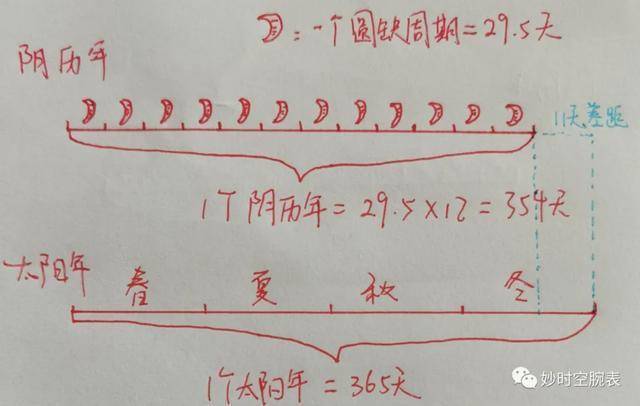 月：一个圆缺周期=29.5天
阴历年
月 月 月 月 月 月 月 月 月 月 月 月
11天差距
1个阴历年=29.5×12=354天
太阳年
春 夏 秋 冬
1个太阳年=365天
妙时空腕表